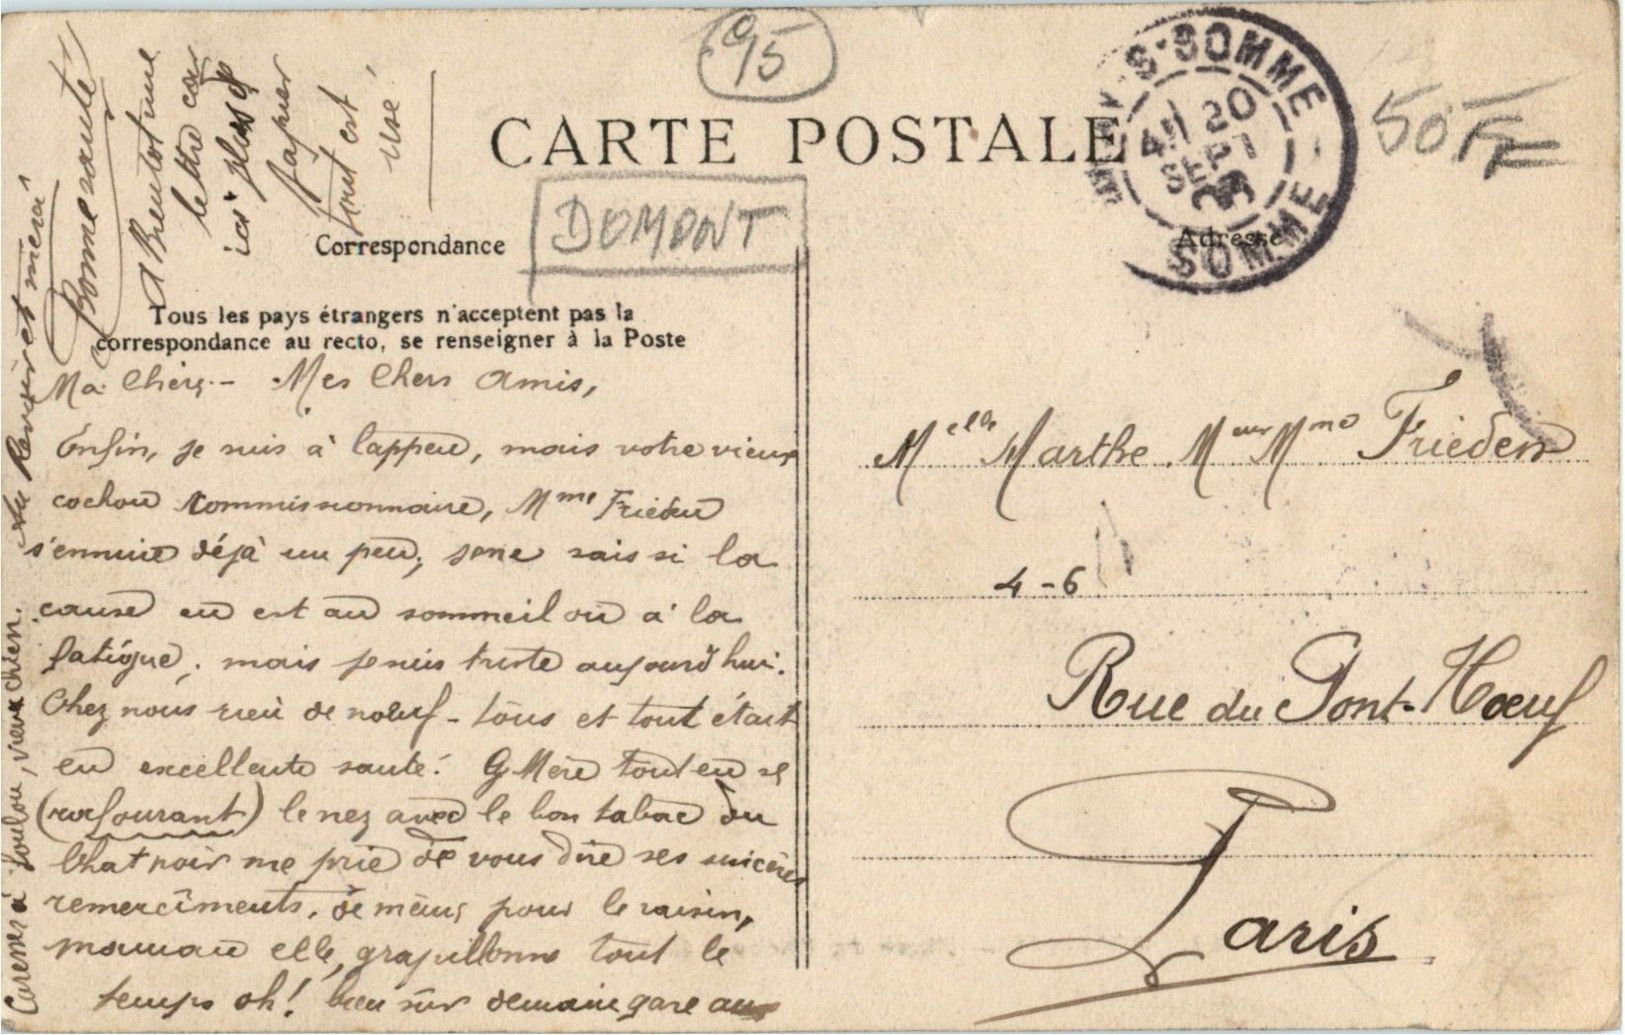 95
50 F
CARTE POSTALE
DOMONT
SOMME
20
SEPT
SOMME
Correspondance
Adresse
Tous les pays étrangers n'acceptent pas la
correspondance au recto, se renseigner à la Poste
Ma Chère - Mes Chers Amis,
Enfin, je suis à l'appeu, mais votre vieux
cochon commissionnaire, Mme Frieden
s'ennuie déjà un peu, je ne sais si la
cause en est au sommeil ou à la
fatigue, mais je suis triste aujourd'hui.
Chez nous rien de nœuf - tous et tout était
en excellente santé. G Mère tout en se
(rafourant) le nez avec le bon tabac du
Chat noir me prie de vous dire ses sincères
remerciments, de même pour le raisin,
maman elle, grapillonne tout le
temps oh! bien sûr demain gare aux
Caresses à Loulou, vieux chien. Au Revoir et merci
Bonne santé
A Bientôt une
lettre car
ici plus de
papier
tout est
usé.
Melle Marthe Meur Mme Frieden
4-6
Rue du Pont-Nœuf
Paris